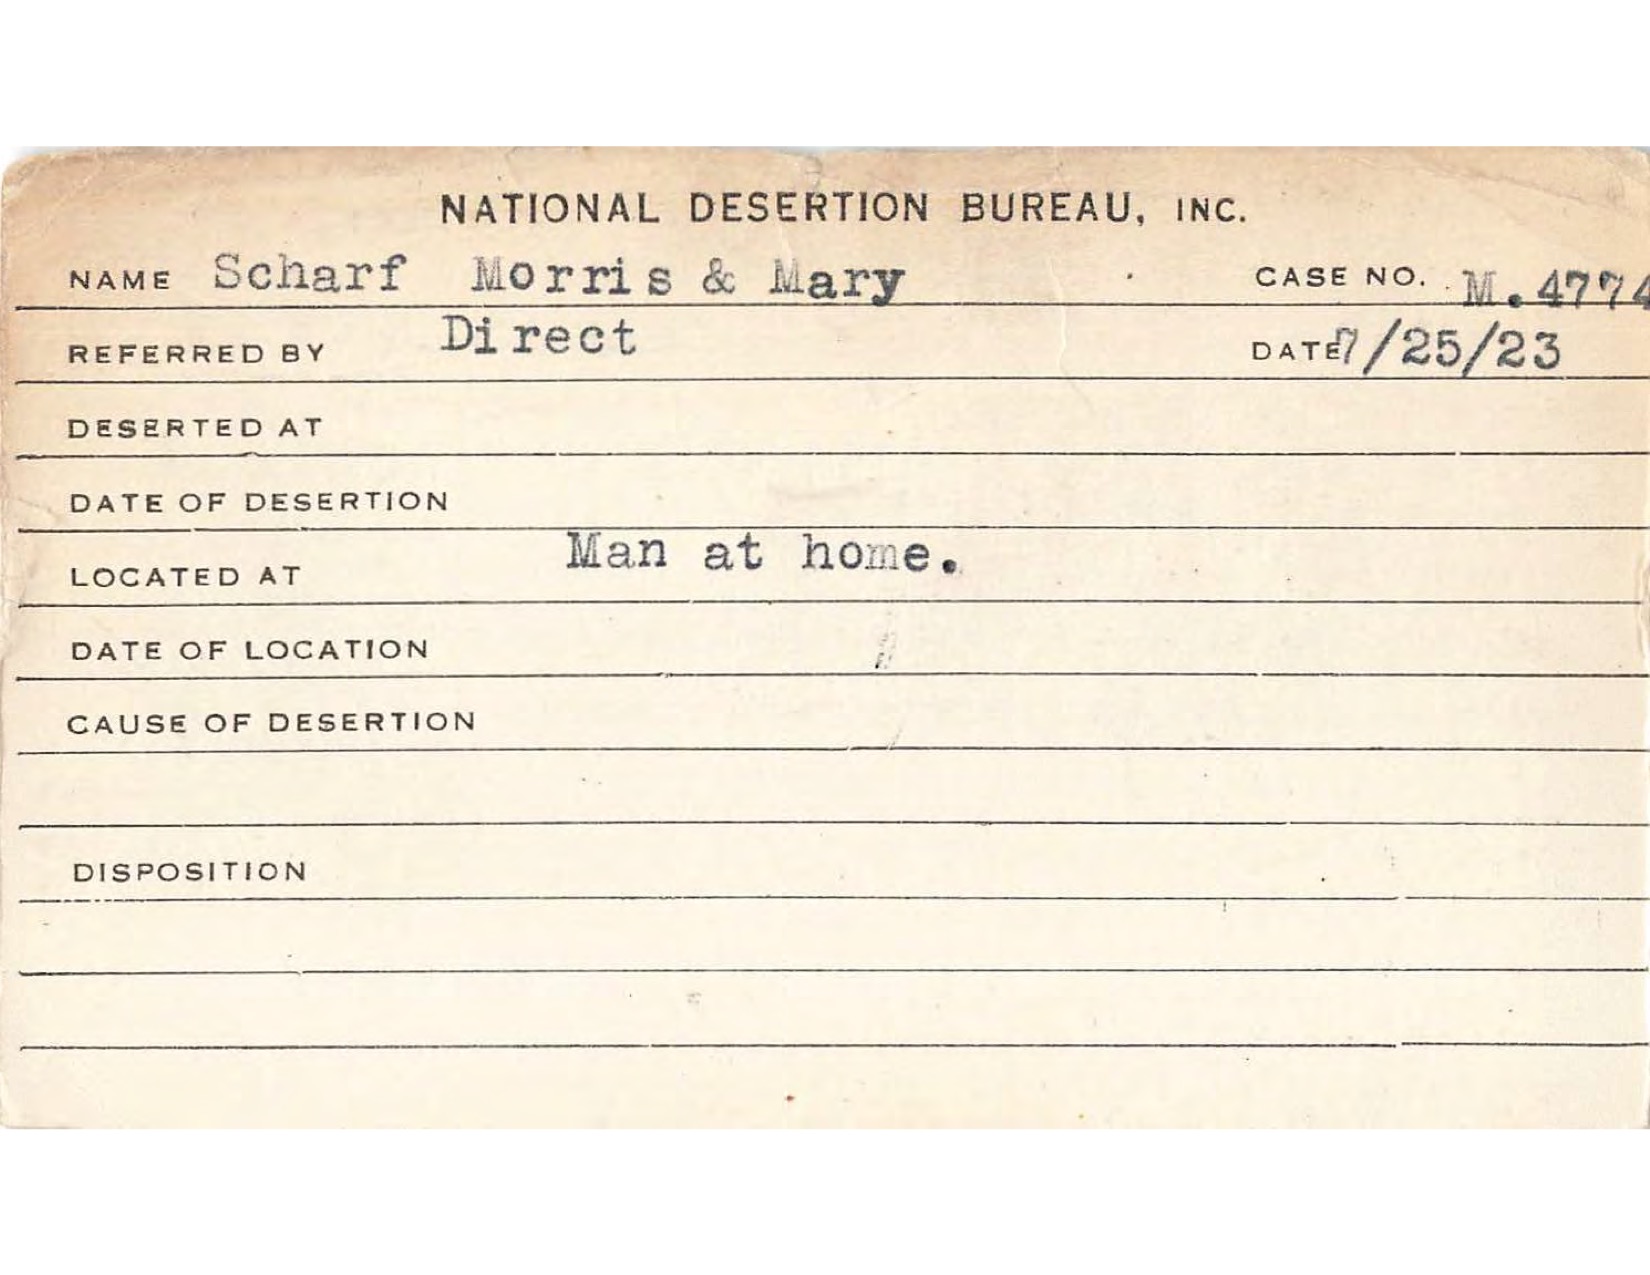 NATIONAL DESERTION BUREAU, INC.
NAME Scharf Morris & Mary CASE NO. M.4774
REFERRED BY Direct DATE 7/25/23
DESERTED AT
DATE OF DESERTION
LOCATED AT Man at home.
DATE OF LOCATION
CAUSE OF DESERTION
DISPOSITION